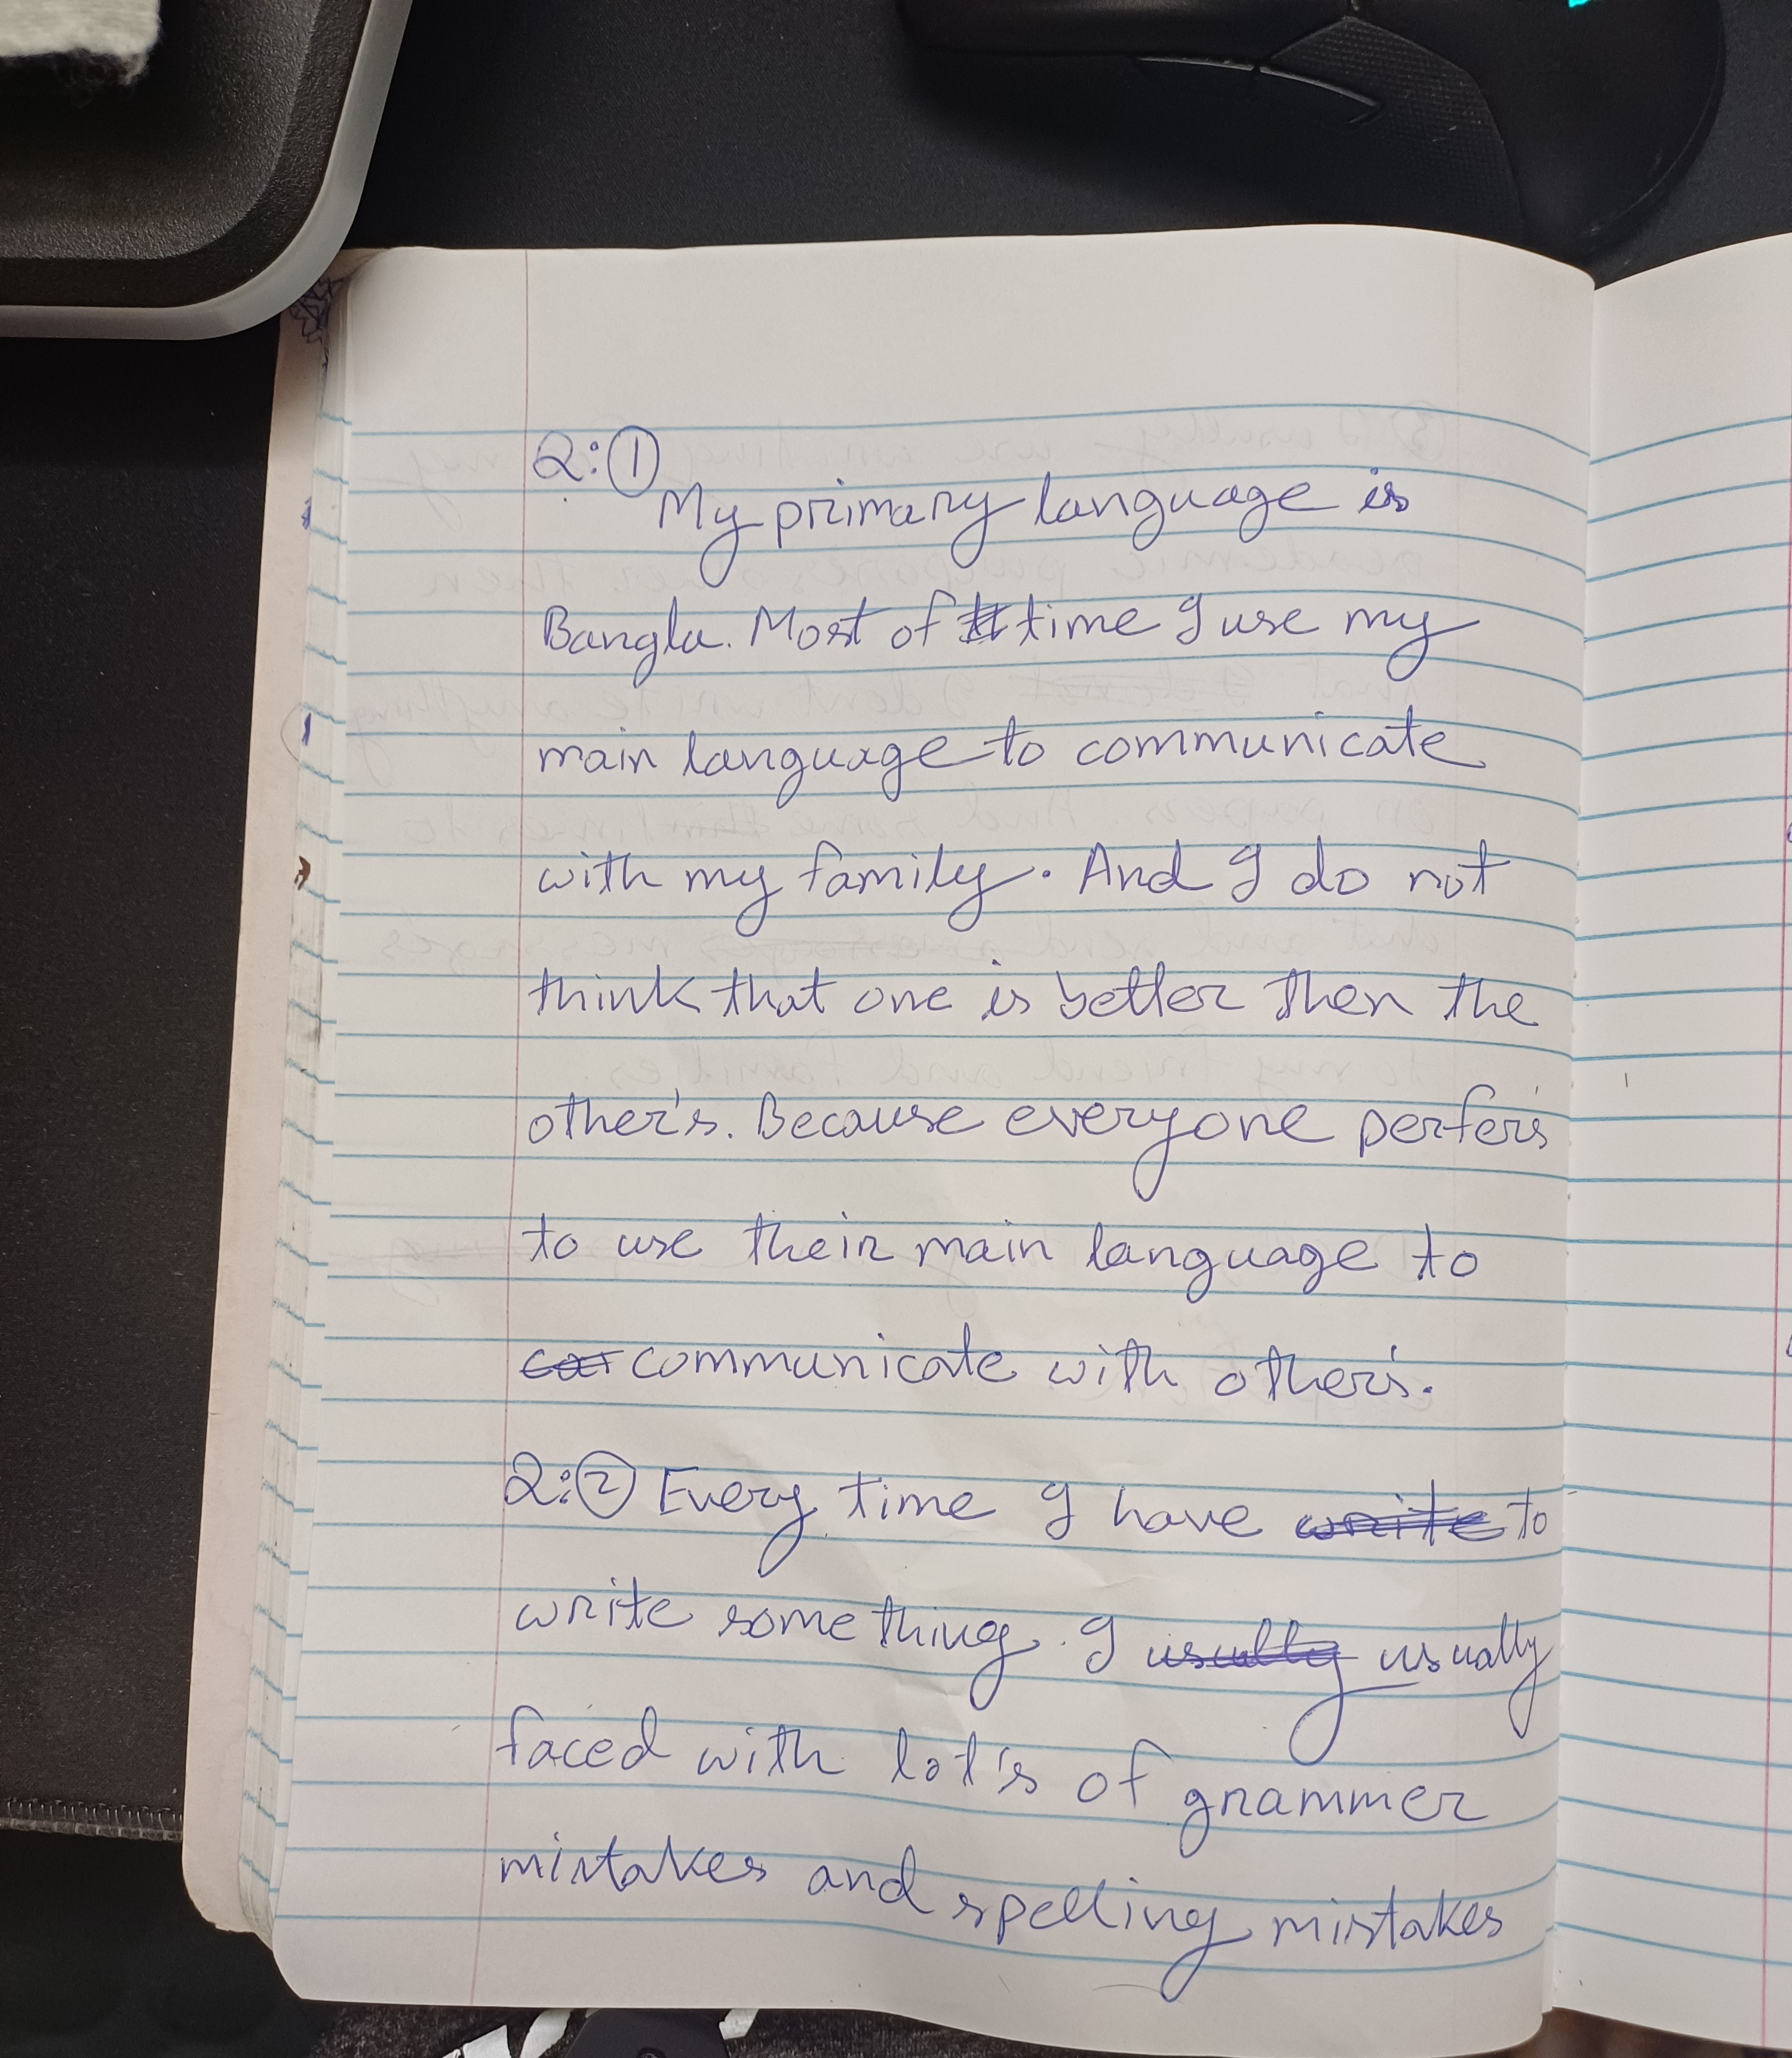 Q:①
My primary language is
Bangla. Most of time I use my
main language to communicate
with my family. And I do not
think that one is better then the
other's. Because everyone perfer's
to use their main language to
communicate with other's.
Q:② Every time I have write to
write something. I usully usually
faced with lot's of grammer
mistakes and spelling mistakes